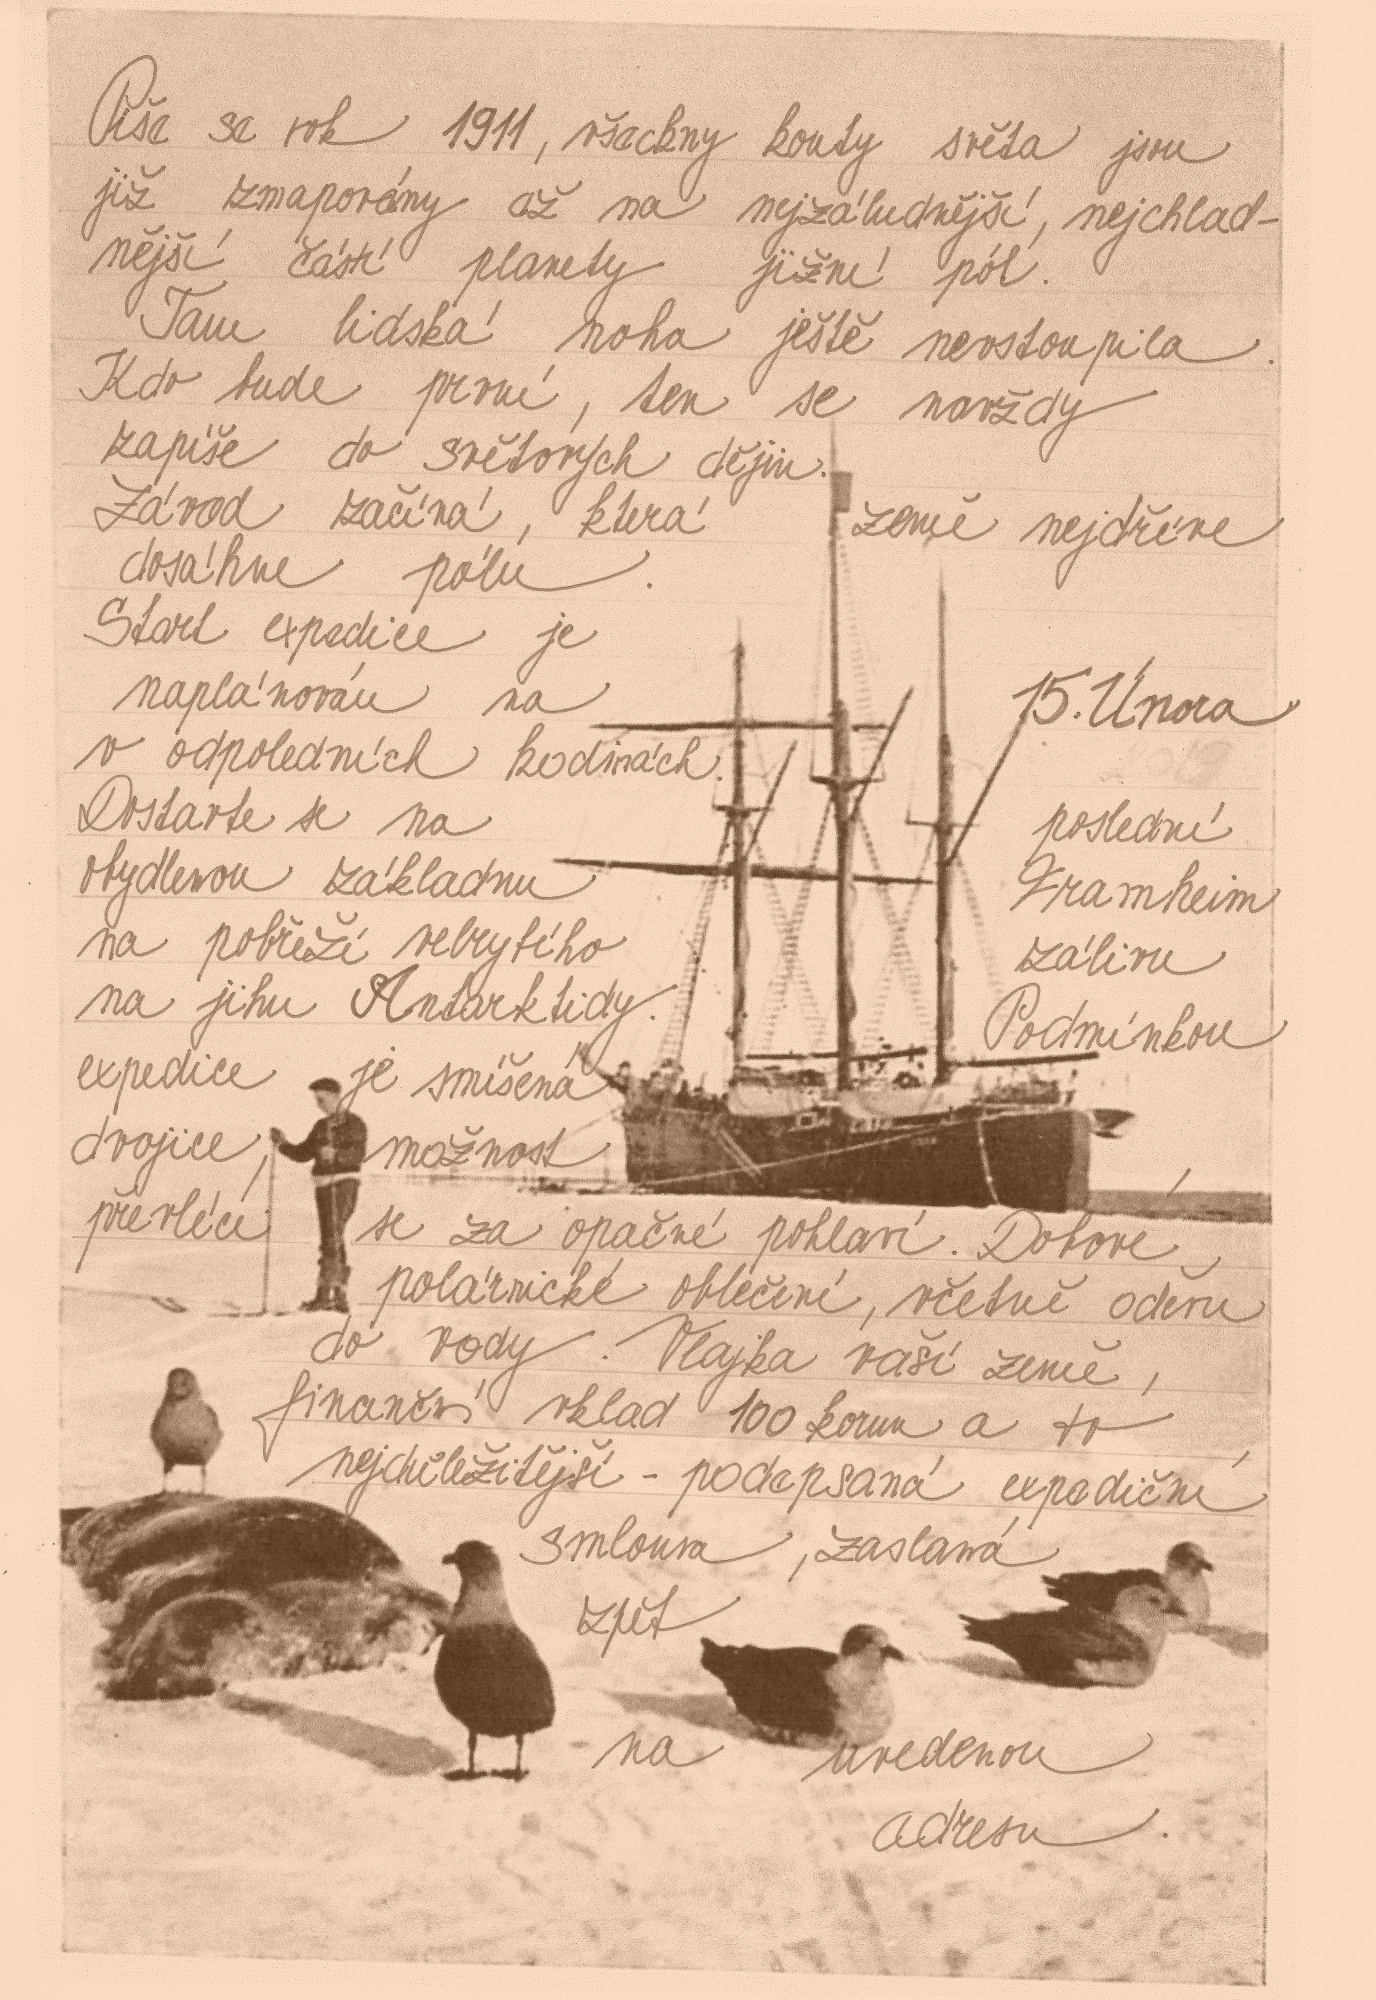 Píše se rok 1911, všechny kouty světa jsou
již zmapovány až na nejzáludnější, nejchlad-
nější části planety jižní pól.
Tam lidská noha ještě nevstoupila.
Kdo bude první, ten se navždy
zapíše do světových dějin.
Závod začíná, která země nejdříve
dosáhne pólu.
Start expedice je
naplánován na 15. Února
v odpoledních hodinách.
Dostavte se na poslední
obydlenou základnu Framheim
na pobřeží velrybího zálivu
na jihu Antarktidy. Podmínkou
expedice je smíšená
dvojice, možnost
převléci se za opačné pohlaví. Dobové
polárnické oblečení, včetně oděvu
do vody. Vlajka vaší země,
finanční vklad 100 korun a to
nejdůležitější - podepsaná expediční
smlouva, zaslaná
zpět
na uvedenou
adresu.